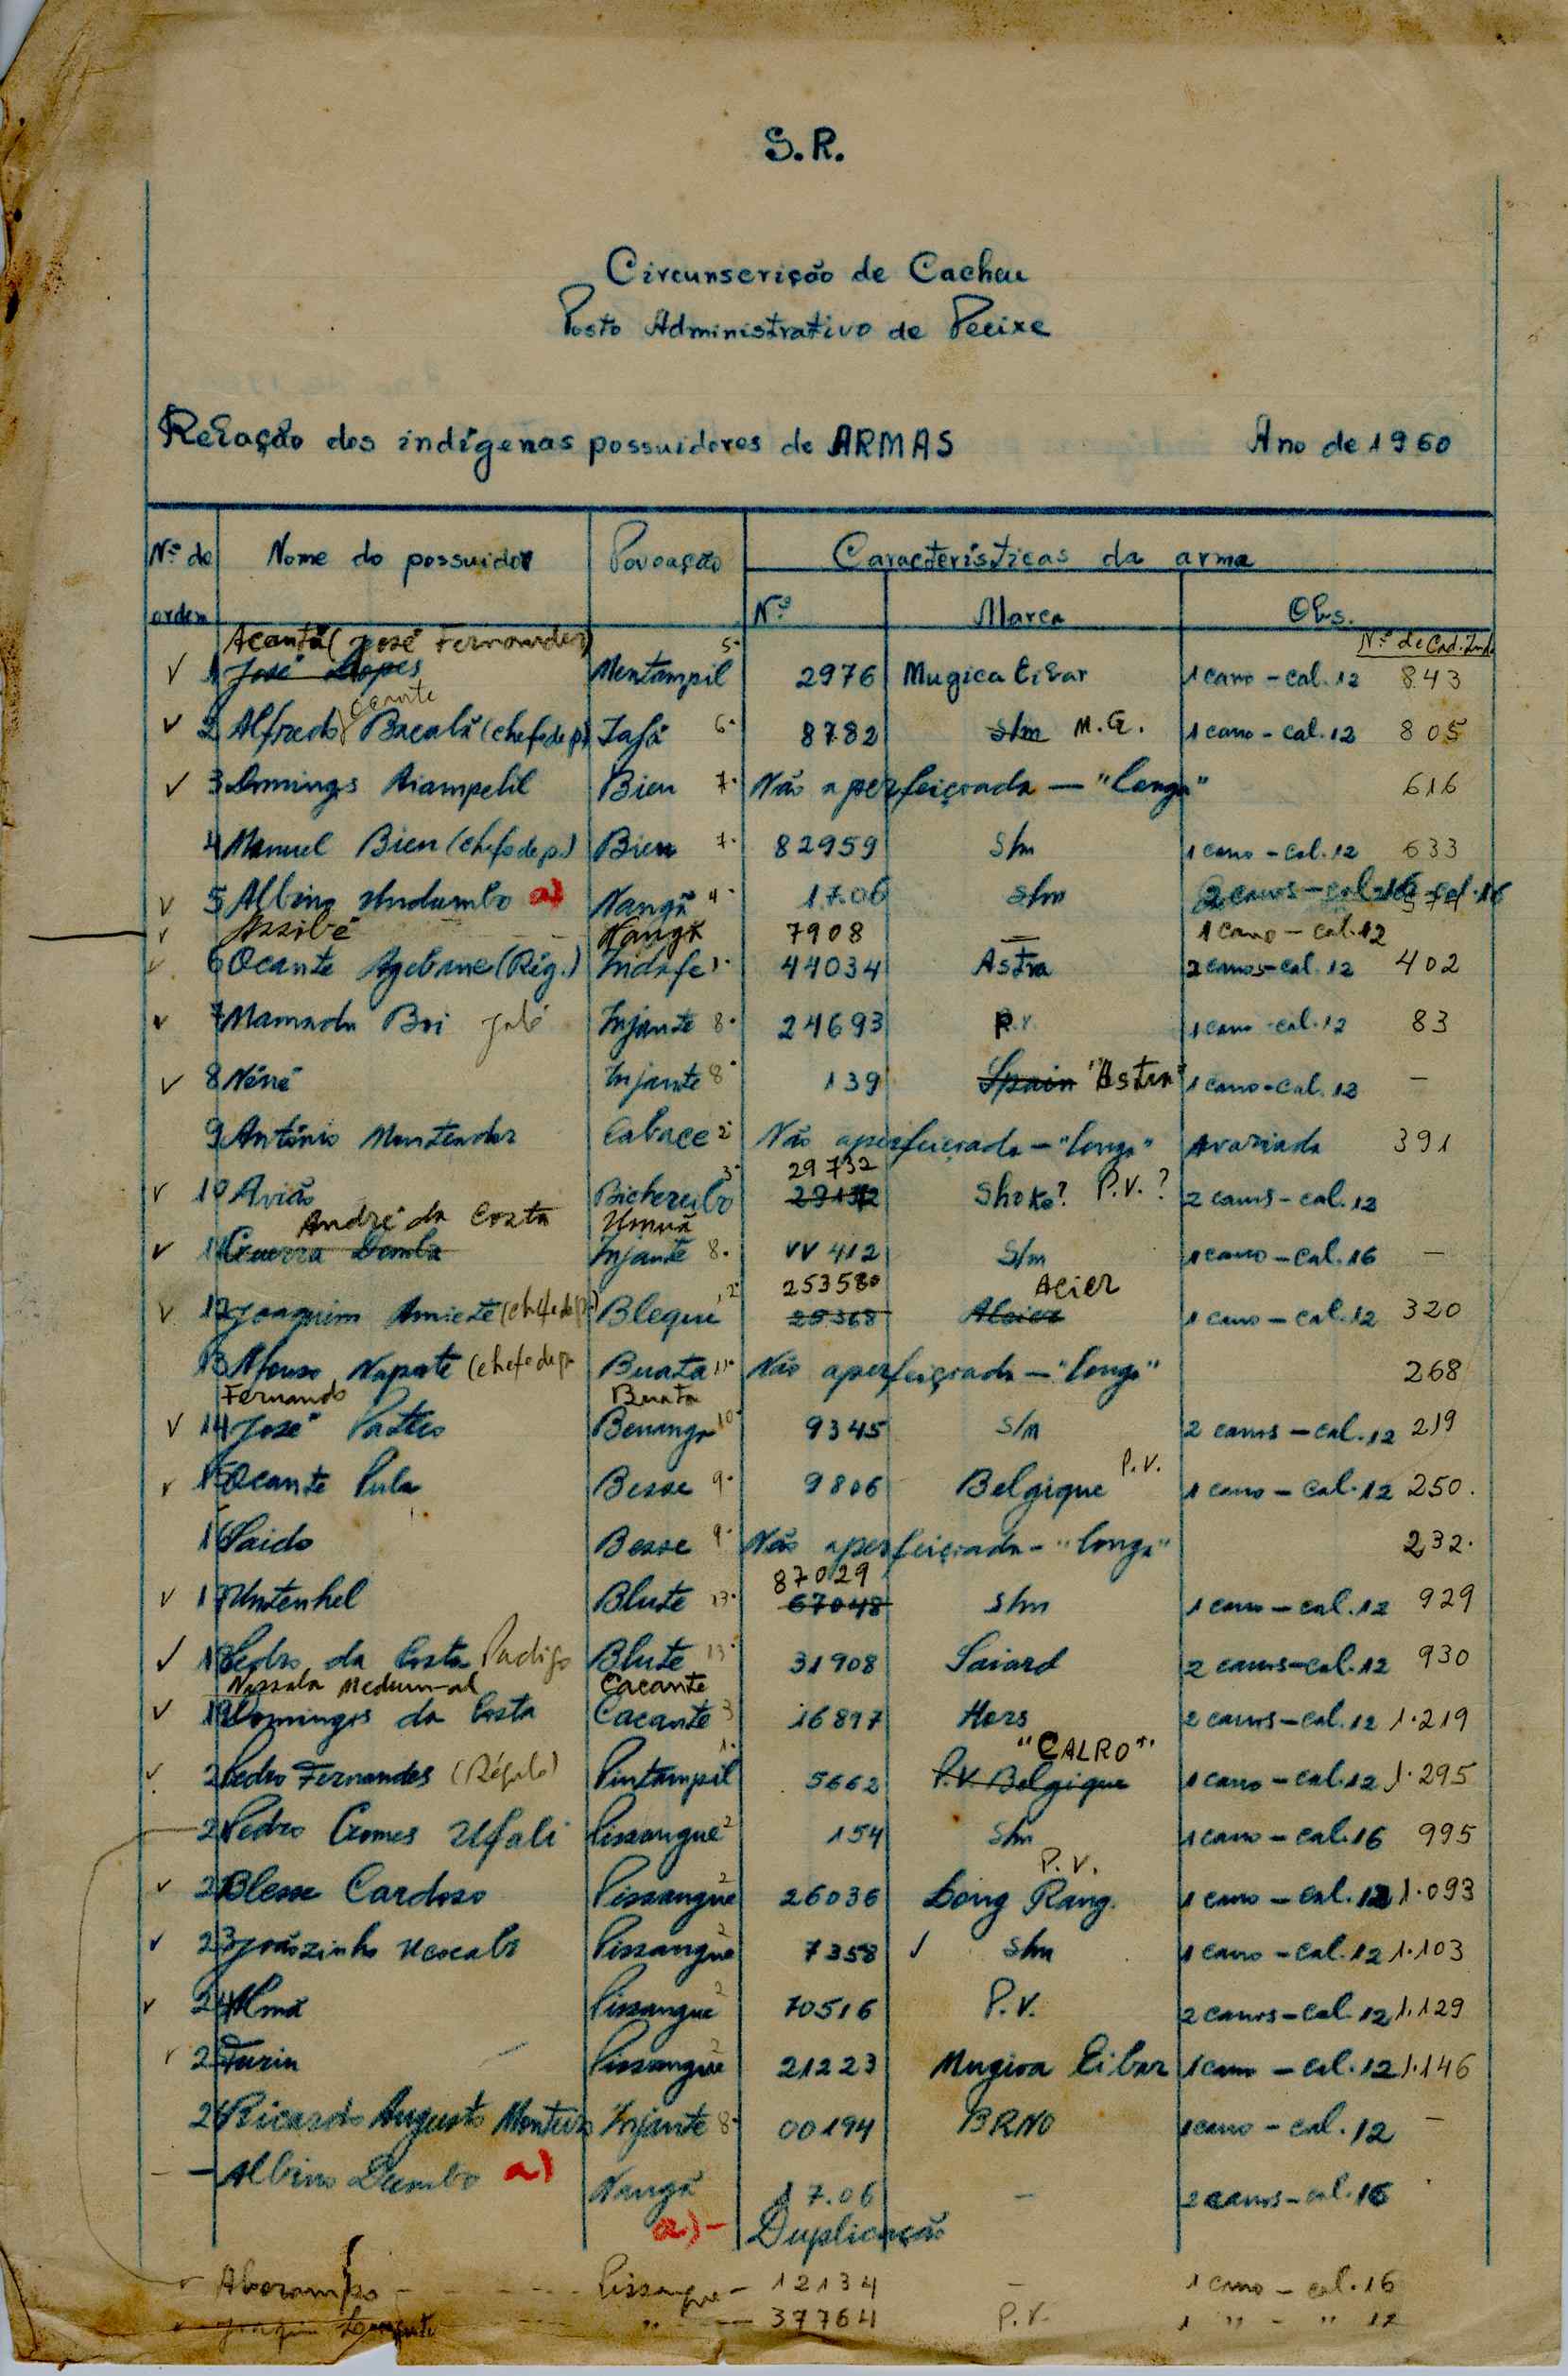 S.R.
Circunscrição de Cacheu
Posto Administrativo de Pecixe
Relação dos indígenas possuidores de ARMAS Ano de 1960
Nº de ordem Nome do possuidor Povoação Características da arma
Nº Marca Obs. Nº de Cad. Ind.
Acantã (José Fernandes) 5-
V 1 José Lopes Mentampil 2976 Mugica Eibar 1 cano - cal. 12 843
Ocante
V 2 Alfredo Bacalã (chefe de p.) Jafã 6- 8782 s/m M.G. 1 cano - cal. 12 805
V 3 Domingos Biampelil Bien 7- Não aperfeiçoada — "longa" 616
4 Manuel Bien (chefe de p.) Bien 7- 82959 s/m 1 cano - cal. 12 633
V 5 Albino a) Nangã 4- 17.06 s/m 2 canos - cal. 16
V Assibê Nangã 7908 — 1 cano - cal. 12
V 6 Ocante Agebane (Rég.) Indafe 1- 44034 Astra 2 canos - cal. 12 402
V 7 Mamadu Boi Jaló Injante 8- 24693 P.V. 1 cano - cal. 12 83
V 8 Néné Injante 8- 139 Spain "Astra" 1 cano - cal. 12 —
9 António Cabace 2- Não aperfeiçoada - "longa" Avariada 391
3- 29732
V 10 Avião 29132 Shoke? P.V.? 2 canos - cal. 12
André da Costa
V 11 Guerra Demba Injante 8. VV 412 s/m 1 cano - cal. 16 —
12- 253580 Acier
V 12 Joaquim (chefe de p.) Blequi 25368 Alcier 1 cano - cal. 12 320
13 Afonso Napate (chefe de p. Buata 11- Não aperfeiçoada - "longa" 268
Fernando Buata
V 14 José 10- 9345 s/m 2 canos - cal. 12 219
V 15 Ocante Pula Besse 9- 9806 Belgique P.V. 1 cano - cal. 12 250.
16 Saido Besse 9- Não aperfeiçoada - "longa" 232.
87029
V 17 Untenhel Blute 13- 67048 s/m 1 cano - cal. 12 929
V 18 Pedro da Costa Blute 13- 31908 Saiard 2 canos - cal. 12 930
Nassala Medum-al Cacante
V 19 Domingos da Costa Cacante 3 16897 Hers 2 canos - cal. 12 1.219
1- "CALRO"
V 20 Pedro Fernandes (Régulo) Pintampil 5662 P.V. Belgique 1 cano - cal. 12 1.295
21 Pedro Gomes Ufali Pissangue 2 154 s/m 1 cano - cal. 16 995
P.V.
V 22 Blesse Cardoso Pissangue 2 26036 Long Rang. 1 cano - cal. 12 1.093
V 23 Joãozinho Ucocabo Pissangue 2 7358 V s/m 1 cano - cal. 12 1.103
V 24 Almã Pissangue 2 70516 P.V. 2 canos - cal. 12 1.129
V 25 Furin Pissangue 2 21223 Mugica Eibar 1 cano - cal. 12 1.146
26 Ricardo Augusto Monteiro Injante 8- 00194 BRNO 1 cano - cal. 12 —
— Albino Dumbo a) Nangã 17.06 — 2 canos - cal. 16
a) - Duplicação
V Pissangue - 12134 — 1 cano - cal. 16
V Joaquim " — 37764 P.V. 1 " - " 12